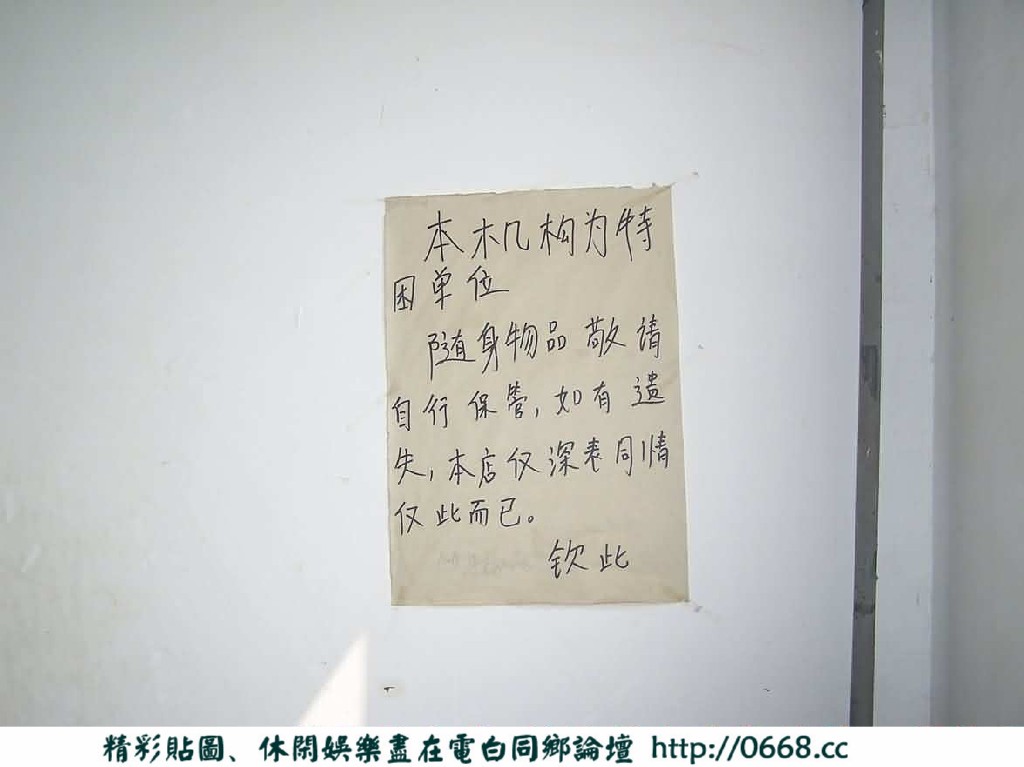 本机构为特
困单位
随身物品敬请
自行保管,如有遗
失,本店仅深表同情
仅此而已。
钦此
精彩貼圖、休閑娛樂盡在電白同鄉論壇 http://0668.cc